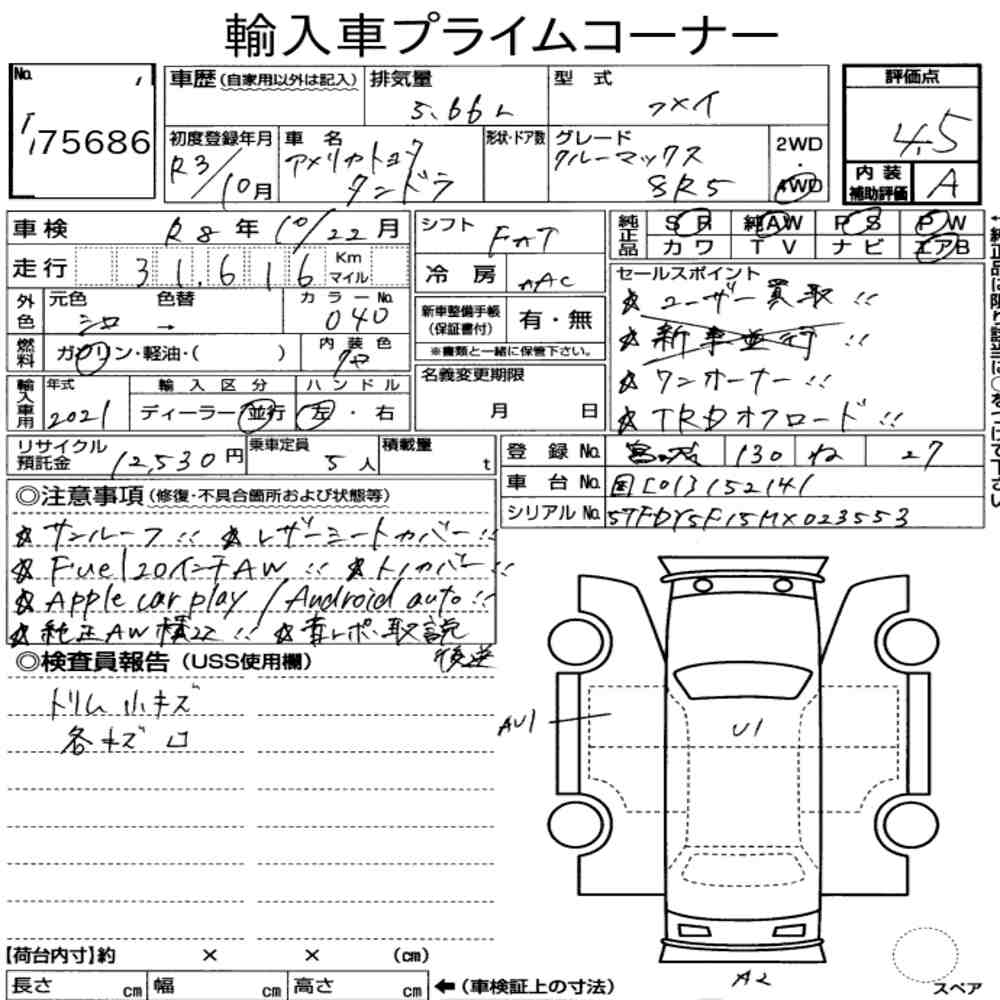 輸入車プライムコーナー
No.
75686
車歴(自家用以外は記入)
排気量
5.66L
型式
フメイ
評価点
4.5
初度登録年月
R3/10月
車名
アメリカトヨタ
タンドラ
形状・ドア数
グレード
クルーマックス
SR5
2WD
・
4WD
内装
補助評価
A
車検
R8年10/22月
走行
31,616
Km
マイル
シフト
FAT
冷房
AAC
純正品
SR
純AW
PS
PW
カワ
TV
ナビ
エアB
外色
元色
シロ
色替
→
カラーNo.
040
燃料
ガソリン・軽油・( )
内装色
新車整備手帳
(保証書付)
有・無
※書類と一緒に保管下さい。
セールスポイント
☆ユーザー買取!!
☆新車並行
☆ワンオーナー!!
☆TRDオフロード!!
輸入車用
年式
2021
輸入区分
ディーラー・並行
ハンドル
左・右
名義変更期限
月 日
リサイクル
預託金
12,530円
乗車定員
5人
積載量
t
登録No.
130
ね
27
車台No.
国[01]3152141
シリアルNo.
5TFDY5F15MX023553
◎注意事項(修復・不具合箇所および状態等)
☆サンルーフ!! ☆レザーシートカバー!!
☆Fuel20インチAW!! ☆トノカバー!!
☆Apple car play/Android auto!!
☆純正AW積22!! ☆責レポ・取説
後送
◎検査員報告(USS使用欄)
トリム小キズ
各キズロ
AU1
U1
A2
スペア
【荷台内寸】約 × × (cm)
長さ cm
幅 cm
高さ cm
←(車検証上の寸法)